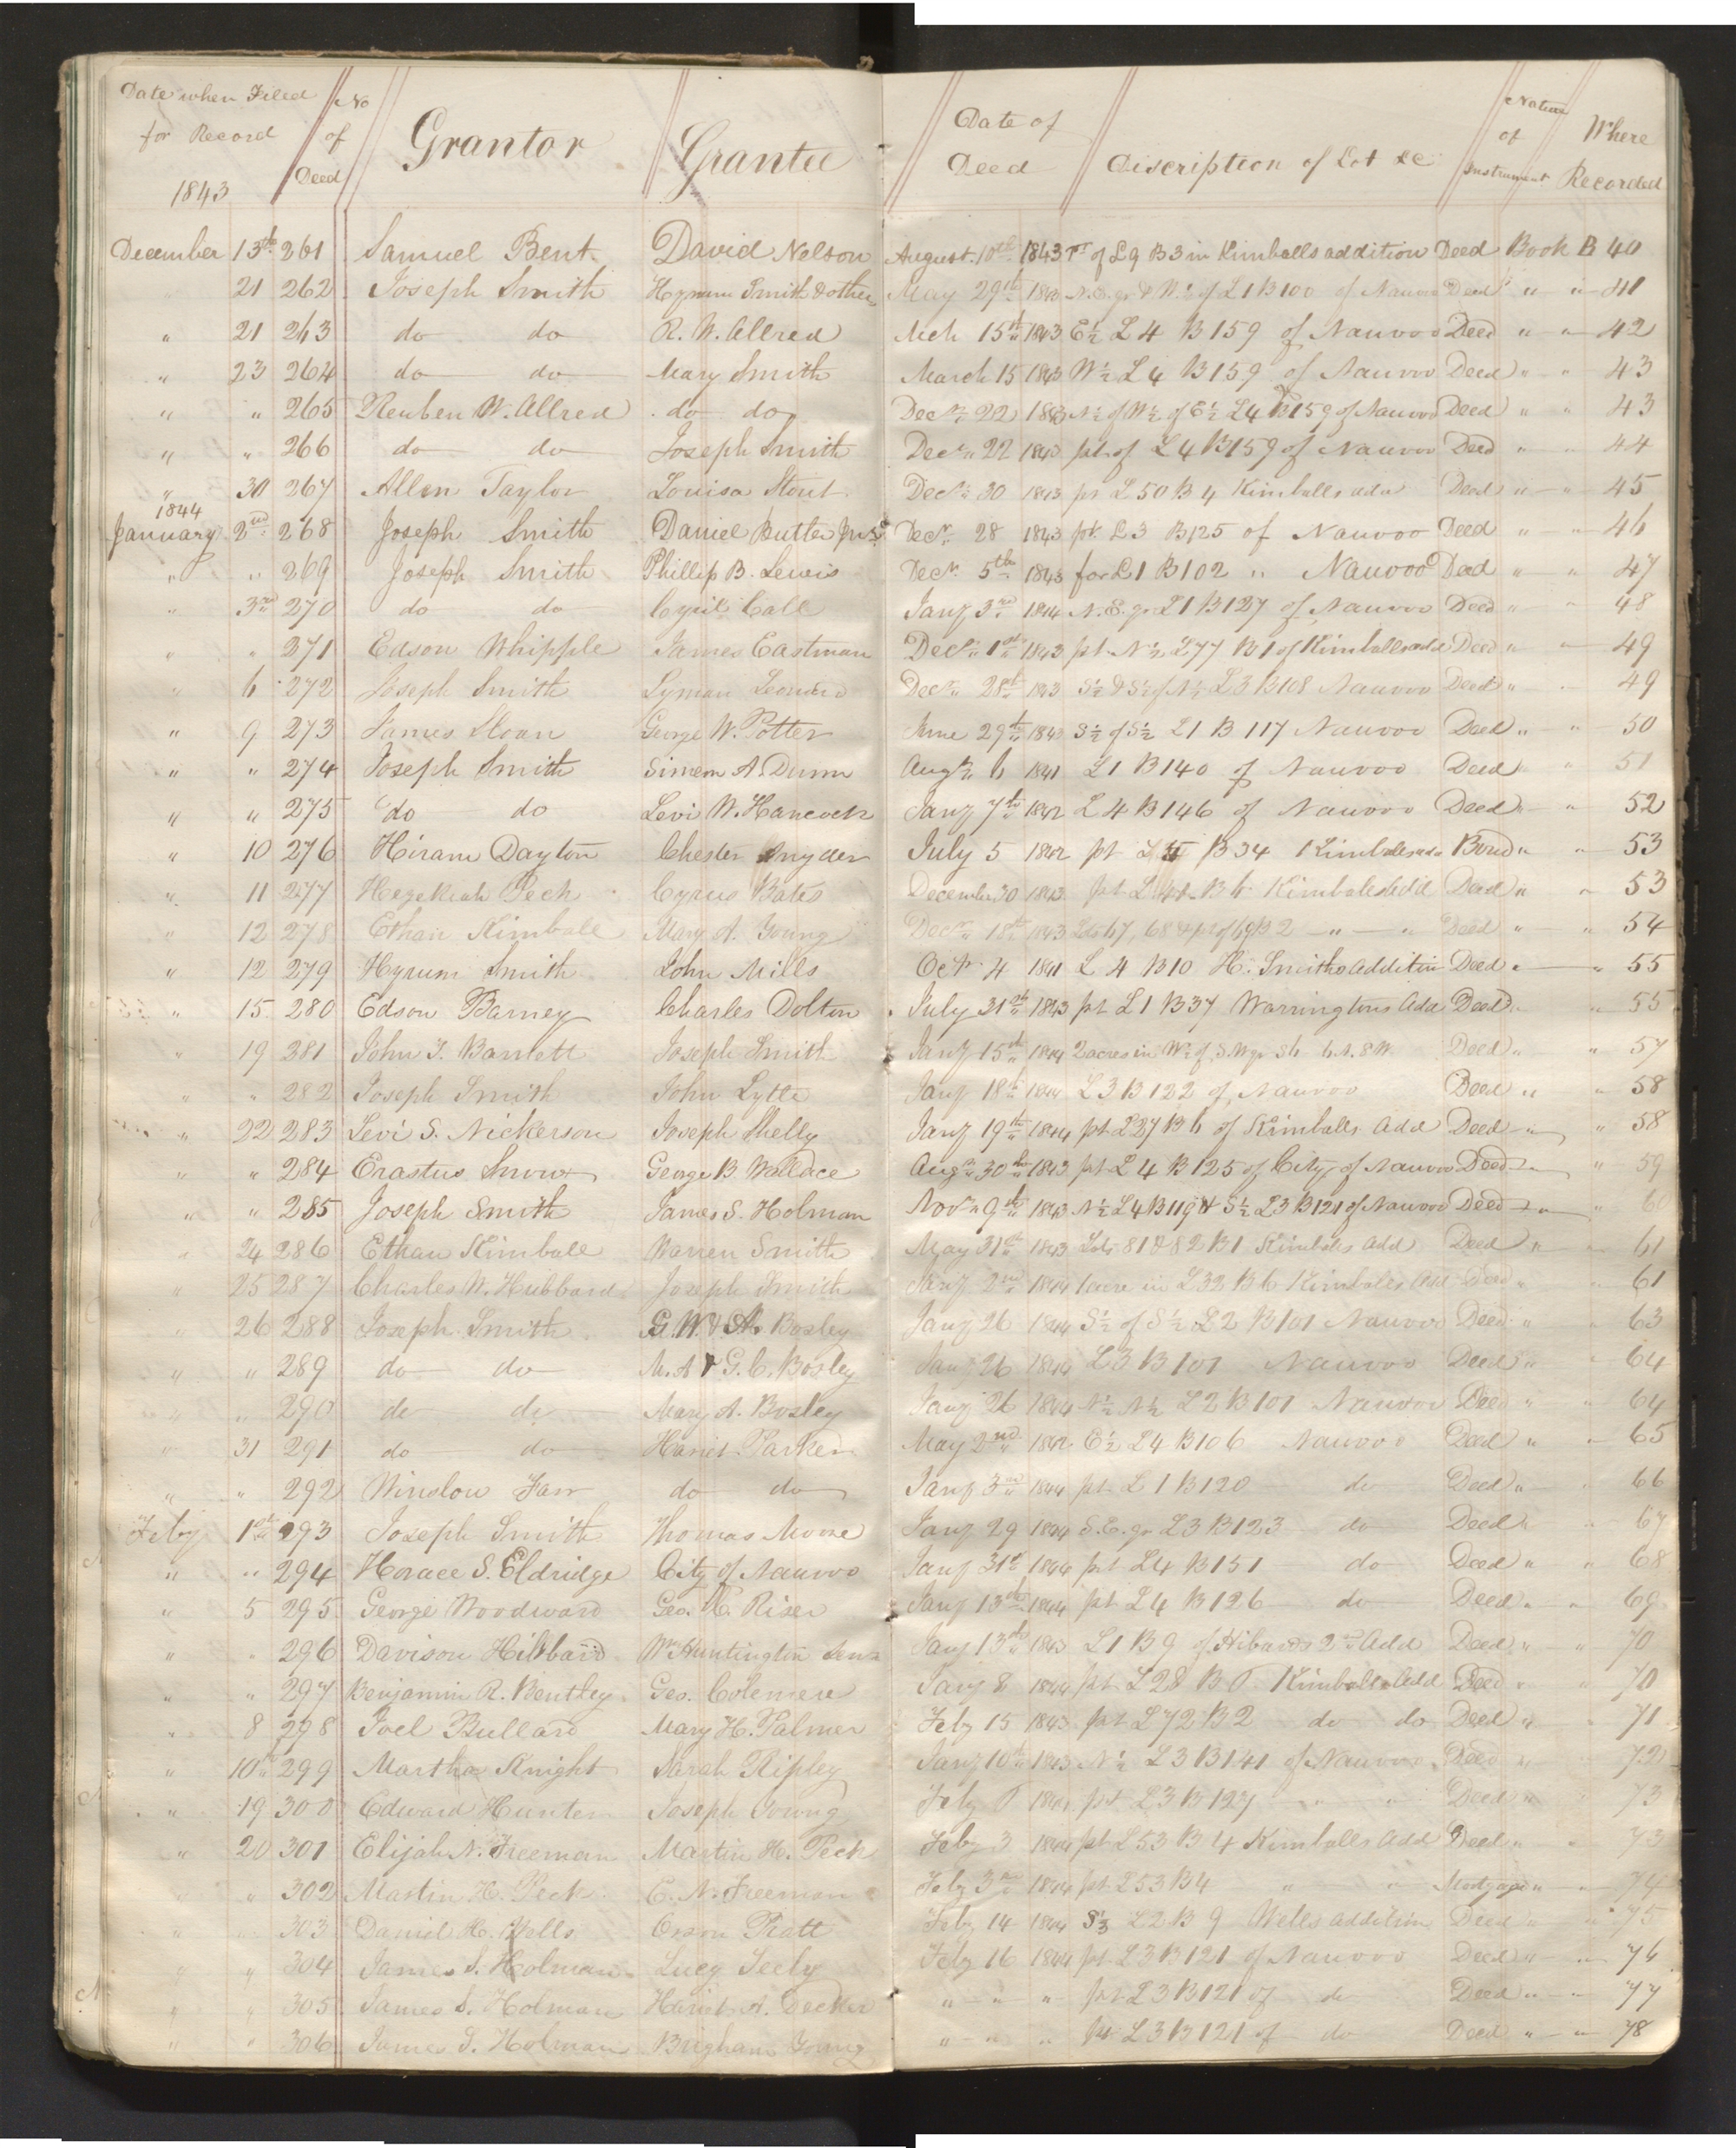 Date when Filed for Record 1843 | No of Deed | Grantor | Grantee | Date of Deed | Discription of Lot &c | Nature of Instrument | Where Recorded
December 13th 261 Samuel Bent David Nelson August 10th 1843 Pt of L9 B3 in Kimballs addition Deed Book B 40
21 262 Joseph Smith Hyrum Smith & others May 29th N.E. qr & W½ of L1 B100 of Nauvoo Deed " " 41
" 21 263 do do R. W. Allred Mch 15th 1843 E½ L4 B159 of Nauvoo Deed " " 42
" 23 264 do do Mary Smith March 15 1843 W½ L4 B159 of Nauvoo Deed " " 43
" " 265 Reuben W. Allred do do Decr 22 1843 N½ of W½ of E½ L4 B159 of Nauvoo Deed " " 43
" " 266 do do Joseph Smith Decr 22 1843 pt of L4 B159 of Nauvoo Deed " " 44
" 30 267 Allen Taylor Louisa Stout Decr 30 1843 pt L50 B4 Kimballs ada Deed " " 45
1844
January 2nd 268 Joseph Smith Daniel Butler Decr 28 1843 pt L3 B125 of Nauvoo Deed " " 46
" " 269 Joseph Smith Phillip B. Lewis Decr 5th 1843 for L1 B102 " Nauvoo Deed " " 47
" 3rd 270 do do Cyril Call Jany 3rd 1844 N.E. qr L1 B127 of Nauvoo Deed " " 48
" " 271 Edson Whipple James Eastman Decr 1st 1843 pt N½ L77 B1 of Kimballs add Deed " " 49
" 6 272 Joseph Smith Lyman Leonard Decr 28th 1843 S½ & S½ of N½ L3 B108 Nauvoo Deed " " 49
" 9 273 James Sloan George W. Potter June 29th S½ of S½ L1 B117 Nauvoo Deed " " 50
" " 274 Joseph Smith Simeon A. Dunn Augt 6 1841 L1 B140 of Nauvoo Deed " " 51
" " 275 do do Levi W. Hancock Jany 7th 1842 L4 B146 of Nauvoo Deed " " 52
" 10 276 Hiram Dayton Chester Snyder July 5 1842 pt B34 Kimballs ada Bond " " 53
" 11 277 Hezekiah Peck Cyrus Bates December 30 1843 pt L B6 Kimballs Add Deed " " 53
" 12 278 Ethan Kimball Mary A. Young Decr 18th 1843 Lots 67, 68 & pt of 69 B2 " " Deed " " 54
" 12 279 Hyrum Smith John Mills Octr 4 1841 L4 B10 H. Smiths Addition Deed " " 55
" 15 280 Edson Barney Charles Dolton July 31st 1843 pt L1 B37 Warringtons Add Deed " " 55
" 19 281 John T. Barnett Joseph Smith Jany 15th 1844 2 acres in W½ of S.W. qr S6 6 N. 8 W. Deed " " 57
" " 282 Joseph Smith John Lytle Jany 18th 1844 L3 B122 of Nauvoo Deed " " 58
" 22 283 Levi S. Nickerson Joseph Shelly Jany 19th 1844 pt L27 B6 of Kimballs Add Deed " " 58
" " 284 Erastus Snow George B. Wallace Augt 30th 1843 pt L4 B125 of City of Nauvoo Deed " " 59
" " 285 Joseph Smith James S. Holman Novr 9th 1843 N½ L4 B119 & S½ L3 B121 of Nauvoo Deed " " 60
" 24 286 Ethan Kimball Warren Smith May 31st 1843 Lots 81 & 82 B1 Kimballs Add Deed " " 61
" 25 287 Charles W. Hubbard Joseph Smith Jany 2nd 1844 1 acre in L32 B6 Kimballs Add Deed " " 61
" 26 288 Joseph Smith G. W. & A. Bosley Jany 26 1844 S½ of S½ L2 B101 Nauvoo Deed " " 63
" " 289 do do M. A & G. C. Bosley Jany 26 1844 L3 B101 Nauvoo Deed " " 64
" " 290 do do Mary A. Bosley Jany 26 1844 N½ N½ L2 B101 Nauvoo Deed " " 64
" 31 291 do do Harriet Parker May 2nd 1842 E½ L4 B106 Nauvoo Deed " " 65
" " 292 Winslow Farr do do Jany 3rd 1844 pt L1 B120 do Deed " " 66
Feby 1st 293 Joseph Smith Thomas Moore Jany 29 1844 S.E. qr L3 B123 do Deed " " 67
" " 294 Horace S. Eldridge City of Nauvoo Jany 31st 1844 pt L4 B151 do Deed " " 68
" 5 295 George Woodward Geo. C. Riser Jany 13th 1844 pt L4 B126 do Deed " " 69
" " 296 Davison Hibbard Wm Huntington Senr Jany 13th 1843 L1 B9 of Hibards 2nd Add Deed " " 70
" " 297 Benjamin R. Bentley Geo. Colemere Jany 8 1844 pt L28 B Kimballs Add Deed " " 70
" 8 298 Joel Bullard Mary H. Palmer Feby 15 1843 pt L72 B2 do do Deed " " 71
" 10 299 Martha Knight Sarah Ripley Jany 10th 1843 N½ L3 B141 of Nauvoo Deed " " 72
" 19 300 Edward Hunter Joseph Young Feby pt L3 B127 " " Deed " " 73
" 20 301 Elijah N. Freeman Martin H. Peck Feby 3 1844 pt L53 B4 Kimballs Add Deed " " 73
" " 302 Martin H. Peck E. N. Freeman Feby 3rd 1844 pt L53 B4 " " Mortgage " " 74
" " 303 Daniel H. Wells Orson Pratt Feby 14 1844 L2 B9 Wells addition Deed " " 75
" " 304 James S. Holman Lucy Seely Feby 16 1844 pt L3 B121 of Nauvoo Deed " " 76
" " 305 James S. Holman Hariet A. Decker " " " pt L3 B121 of do Deed " " 77
" " 306 James S. Holman Brigham Young " " " pt L3 B121 of do Deed " " 78